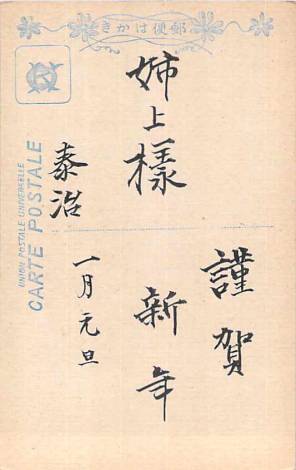 きかはずき便郵
姉上様
泰治
UNION POSTALE UNIVERSELLE
CARTE POSTALE
謹賀
新年
一月元旦